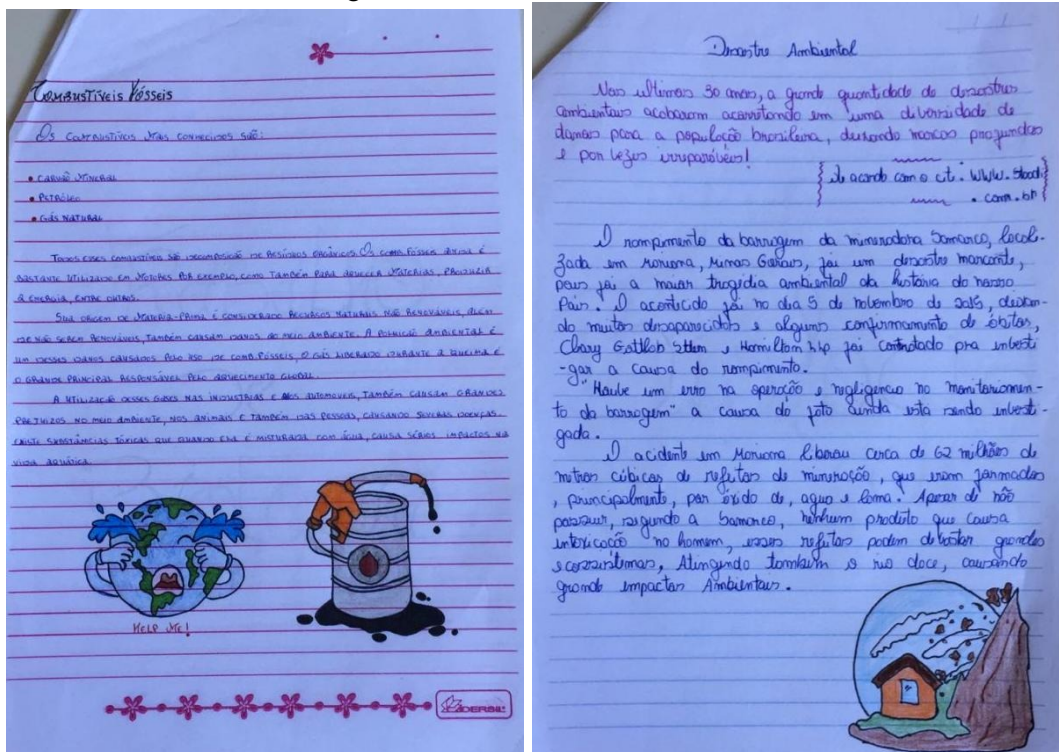 Combustíveis Fósseis
Os Combustíveis mas conhecidos são:
• Carvão Mineral
• Petróleo
• Gás Natural
Todos esses combustíveis são decomposição de resíduos orgânicos. Os comb. Fósseis ainda é
bastante utilizado em motores por exemplo, como também para aquecer materias, produzir
a energia, entre outros.
Sua origem de matéria-prima é considerado recursos naturais não renováveis, alem
de não serem renováveis, também causam danos ao meio ambiente. A poluição ambiental é
um desses danos causados pelo uso de comb. Fósseis, o gás liberado durante a queima é
o grande principal responsável pelo aquecimento global.
A utilização desses gases nas industrias e nos automoveis, também causam grandes
prejuizos no meio ambiente, nos animais e também das pessoas, causando severas doenças.
Existe substâncias tóxicas que quando ela é misturada com água, causa sérios impactos na
vida aquática.
Help Me!
CADERBIL
Desastre Ambiental
Nos ultimos 30 anos, a grande quantidade de desastres
ambientais acabaram acarretando em uma diversidade de
danos para a população brasileira, deixando marcas profundas
e por vezes irreparáveis!
de acordo com o cit: www.stood
.com.br
O rompimento da barragem da mineradora Samarco, locali-
zada em Mariana, Minas Gerais, foi um desastre marcante,
pois foi a maior tragédia ambiental da história do nosso
País. O acontecido foi no dia 5 de novembro de 2015, deixan-
do muitos desaparecidos e alguns confirmamento de óbitos,
Chary Gottlob e Hamilton foi contratado pra investi
-gar a causa do rompimento.
"Houve um erro na operação e negligencia no monitoramen-
to da barragem" a causa do fato ainda esta sendo investi-
gada.
O acidente em Mariana liberou cerca de 62 milhões de
metros cúbicos de rejeitos de mineração, que eram formados
, principalmente, por óxido de, agua e lama. Apesar de não
possuir, segundo a Samarco, nenhum produto que causa
intoxicação no homem, esses rejeitos podem devastar grandes
ecossistemas, Atingindo também o rio doce, causando
grande impactos Ambientais.